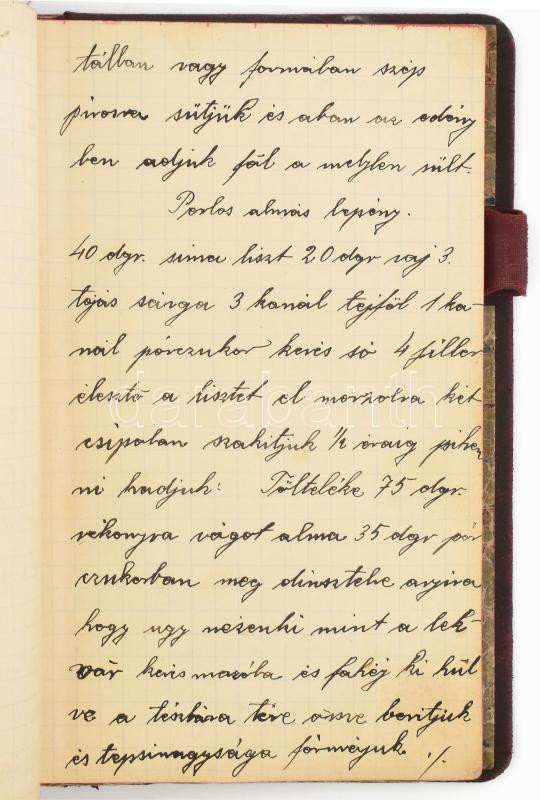 tálban vagy formában szép
pirosra sütjük és aban az edény
ben adjuk fál a melylen sült.
Porlos almás lepény.
40 dgr. sima liszt 20 dgr vaj 3.
tojás sárga 3 kanál tejföl 1 ka-
nál pórczukor kevés só 4 filler
elesztő a lisztet el morzolva két
csipolan szakitjuk 1/2 óraig pihen
ni hadjuk: Tölteléke 75 dgr.
vékonyra vágot alma 35 dgr pór
czukorban meg dinsztelve anyira
hogy ugy nézenki mint a lek-
vár kevés mazóla és fahéj ki hül
ve a tésztára téve össze boritjuk
és tepsinagysága fórmájuk ./.
darabanth